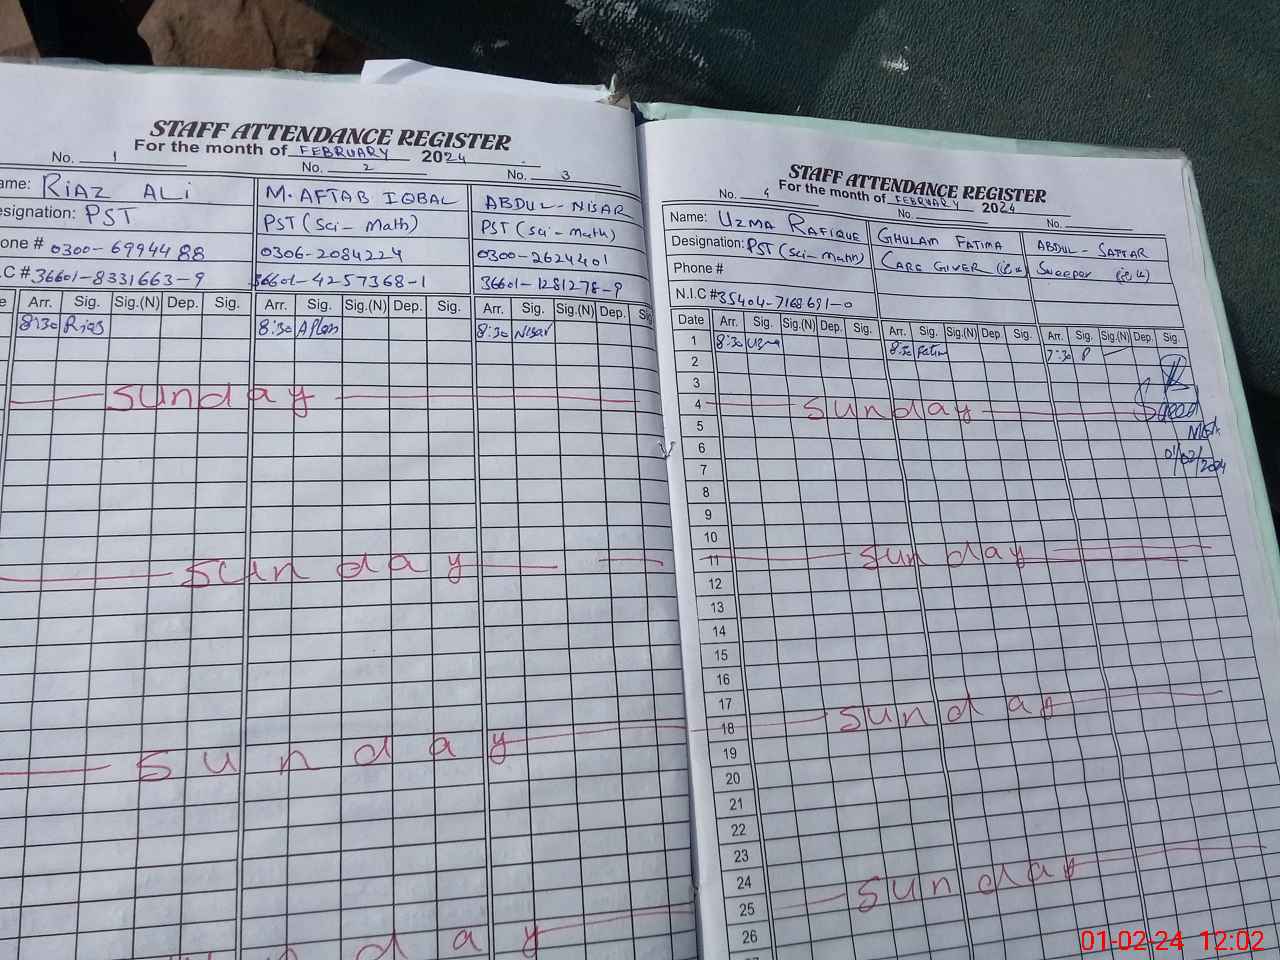 STAFF ATTENDANCE REGISTER
For the month of FEBRUARY 2024
No. 1 No. 2 No. 3
ame: RIAZ ALI M. AFTAB IQBAL ABDUL-NISAR
esignation: PST PST (Sci-Math) PST (Sci-Math)
one # 0300-6994488 0306-2084224 0300-2624401
.C # 36601-8331663-9 36601-4257368-1 36601-1281278-9
e Arr. Sig. Sig.(N) Dep. Sig. Arr. Sig. Sig.(N) Dep. Sig. Arr. Sig. Sig.(N) Dep. Sig
8:30 Riaz 8:30 Aftab 8:30 Nisar
Sunday
Sunday
Sunday
day
STAFF ATTENDANCE REGISTER
For the month of FEBRUARY 2024
No. 4 No. No.
Name: UZMA RAFIQUE GHULAM FATIMA ABDUL-SATTAR
Designation: PST (Sci-Math) CARE GIVER Sweeper
Phone #
N.I.C # 35404-7168691-0
Date Arr. Sig. Sig.(N) Dep. Sig. Arr. Sig. Sig.(N) Dep. Sig. Arr. Sig. Sig.(N) Dep. Sig.
1 8:30 Uzma 8:30 Fatima 7:30 P
2
3
4 Sunday
5
6
01/02/2024
7
8
9
10
11 Sunday
12
13
14
15
16
17
18 Sunday
19
20
21
22
23
24
25 Sunday
26
01-02-24 12:02